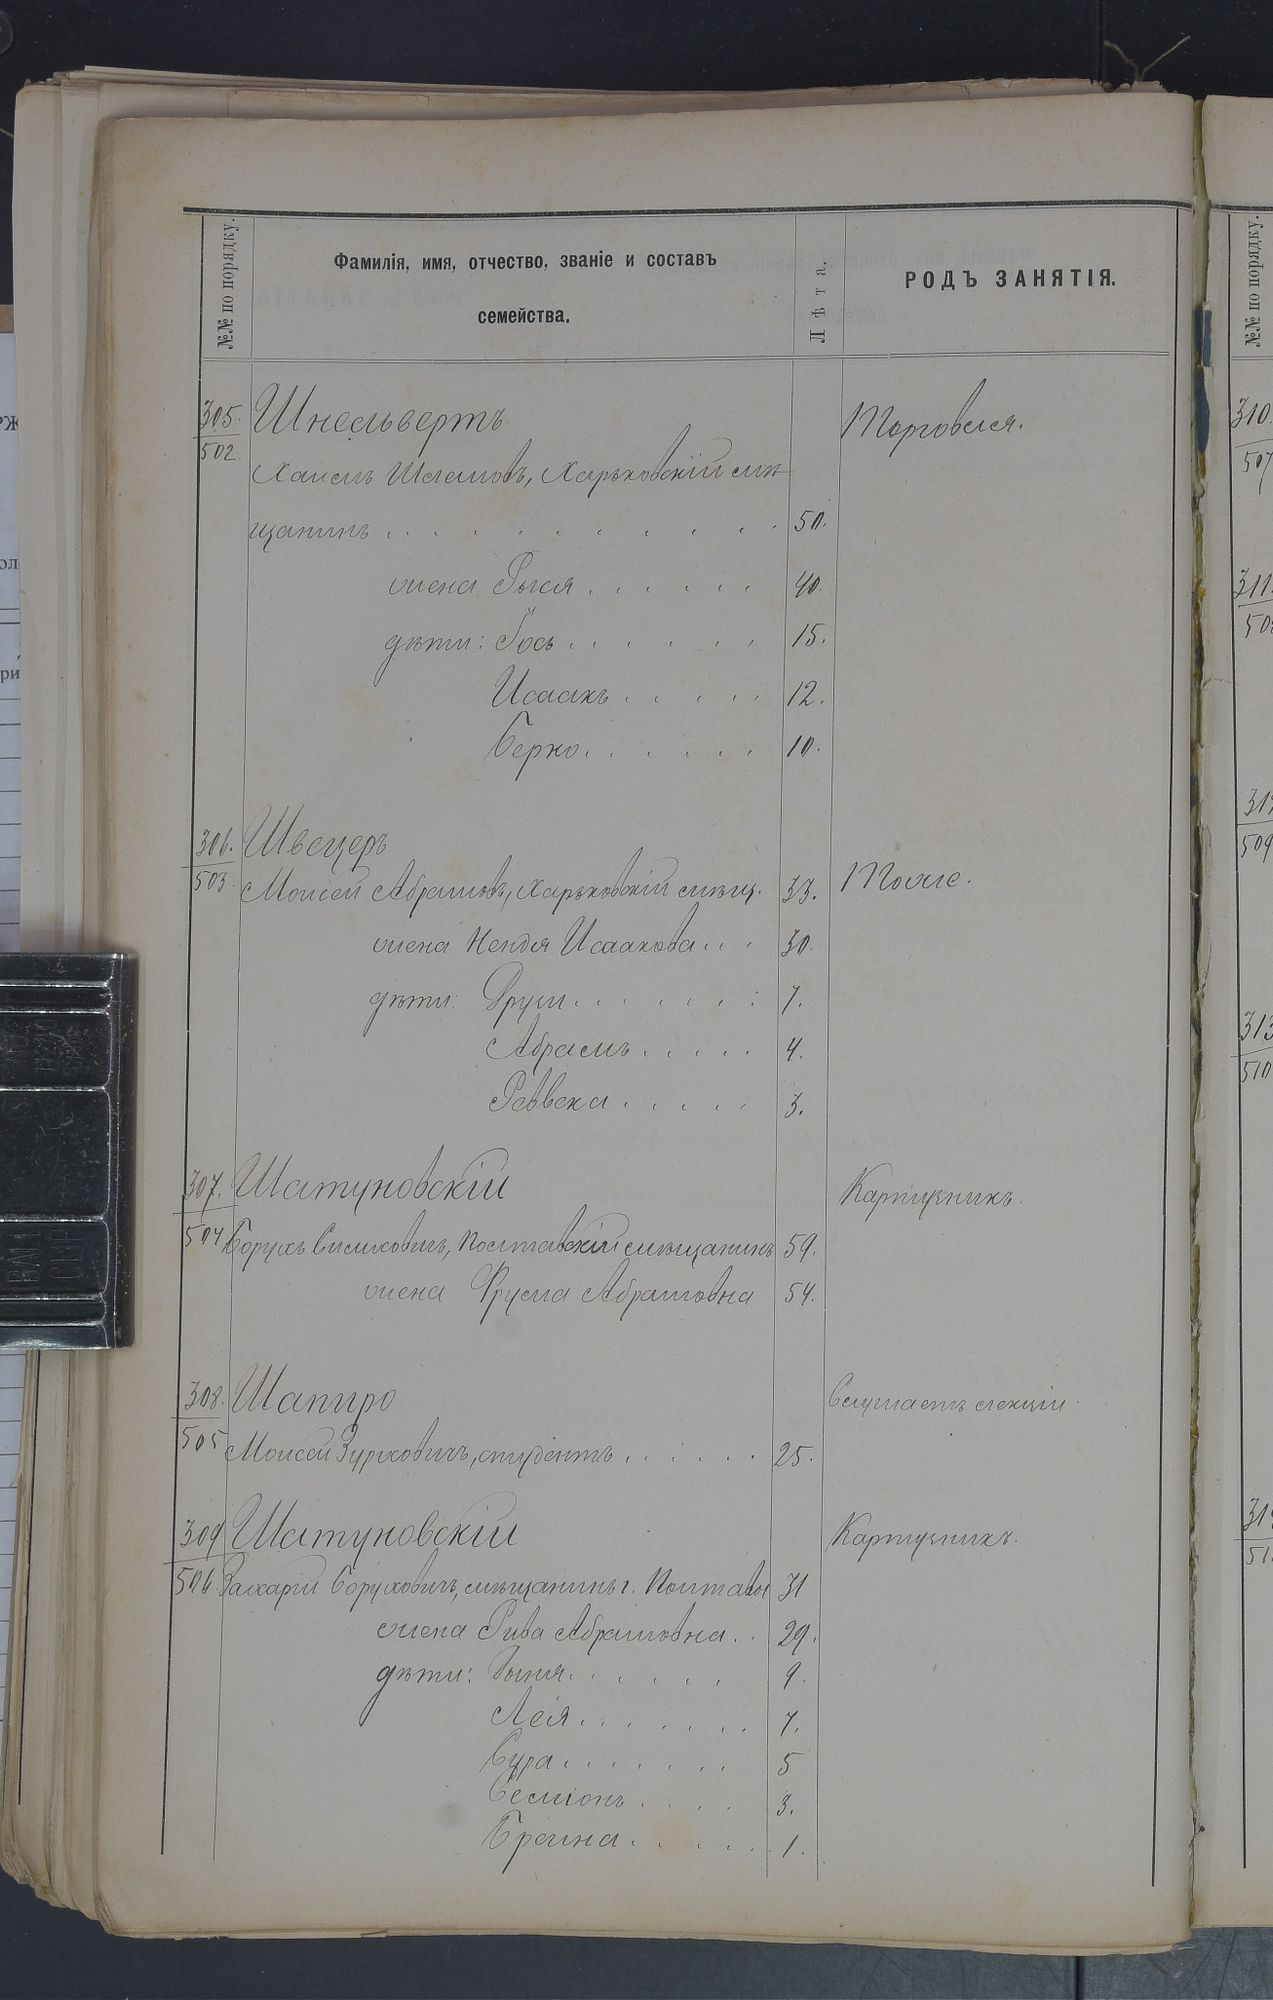 №№ по порядку.
Фамилія, имя, отчество, званіе и составъ
семейства.
Лѣта.
РОДЪ ЗАНЯТІЯ.
№№ по порядку.
305. Шнельвертъ Торговля.
502 Хаимъ Шлемовъ, Харьковскій мѣ-
щанинъ . . . . . . . . . . 50.
жена Рыся . . . . . . 40.
дѣти: Іось . . . . . . 15.
Исаакъ . . . . . 12.
Берко . . . . . . 10.
306. Швецеръ
503. Моисей Абрамовъ, Харьковскій мѣщ. 33. Тоже.
жена Нендя Исаакова . . 30.
дѣти: Фрума . . . . . . 7.
Абрамъ . . . . . 4.
Реввека . . . . . 3.
307. Шатуновскій Картузникъ.
504 Борухъ Симховичъ, Полтавскій мѣщанинъ 59.
жена Фрума Абрамовна 54.
308. Шапиро Слушаетъ лекціи
505 Моисей Зурховичъ, студентъ . . . . . . 25.
309 Шатуновскій Картузникъ.
506 Захарій Боруховичъ, мѣщанинъ г. Полтавы 31
жена Рива Абрамовна . . 29.
дѣти: . . . . . . 9.
Лея . . . . . . . 7.
Сура . . . . . . . 5
Семіонъ . . . . 3.
Браина . . . . . 1.
310.
507
311.
313
510